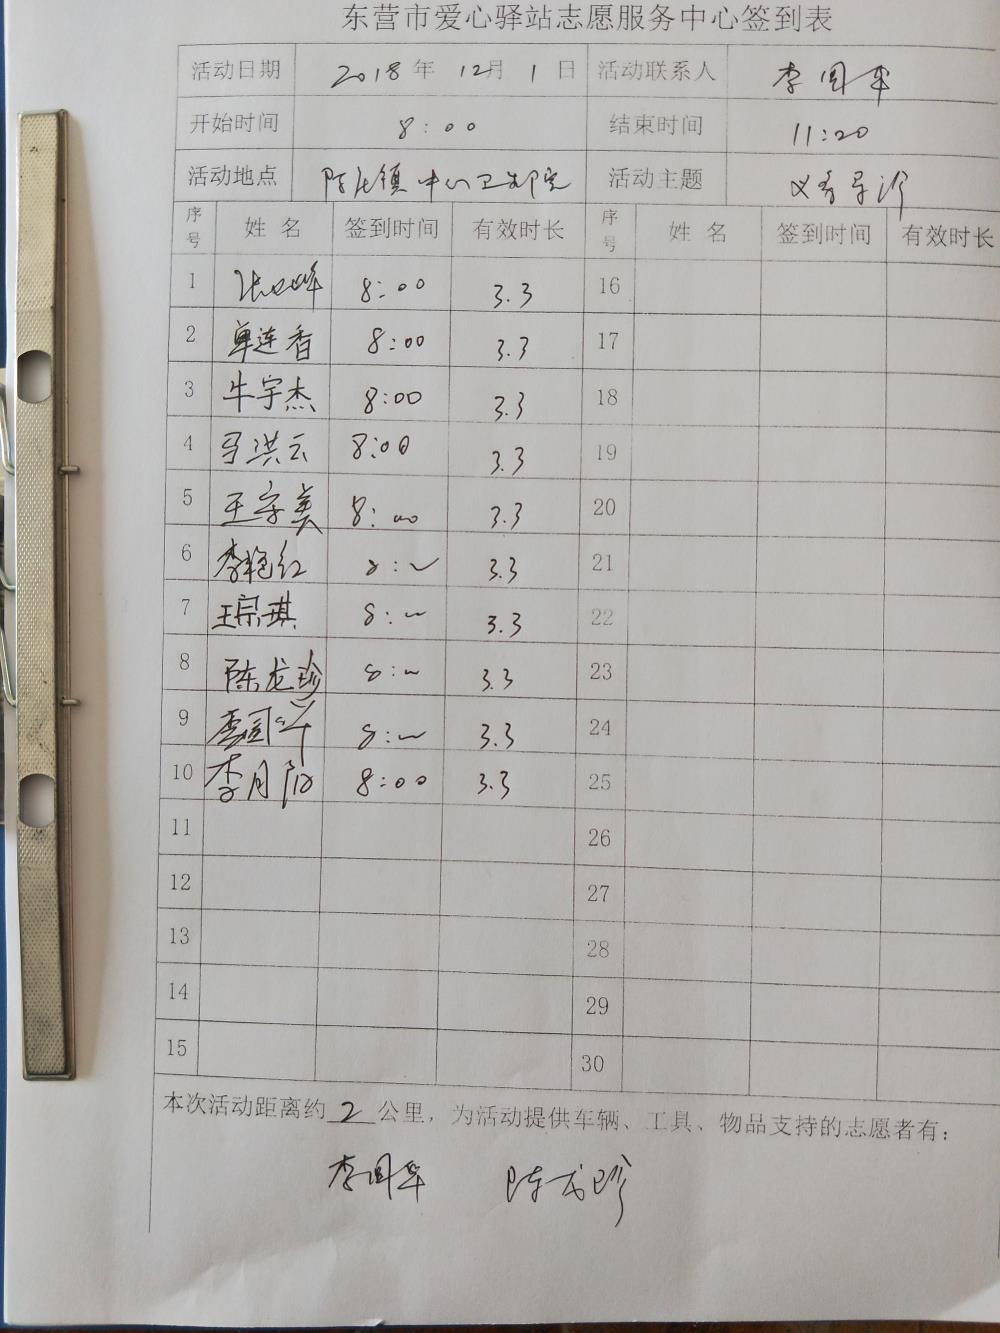 东营市爱心驿站志愿服务中心签到表
活动日期 2018年 12月 1日 活动联系人 李国华
开始时间 8:00 结束时间 11:20
活动地点 陈庄镇中心卫生院 活动主题 义务导诊
序号 姓名 签到时间 有效时长 序号 姓名 签到时间 有效时长
1 8:00 3.3 16
2 单连香 8:00 3.3 17
3 牛宇杰 8:00 3.3 18
4 马洪云 8:00 3.3 19
5 王字美 8:00 3.3 20
6 李艳红 8:00 3.3 21
7 王宗琪 8:00 3.3 22
8 陈龙珍 8:00 3.3 23
9 李国华 8:00 3.3 24
10 李月阳 8:00 3.3 25
11 26
12 27
13 28
14 29
15 30
本次活动距离约 2 公里，为活动提供车辆、工具、物品支持的志愿者有：
李国华 陈龙珍